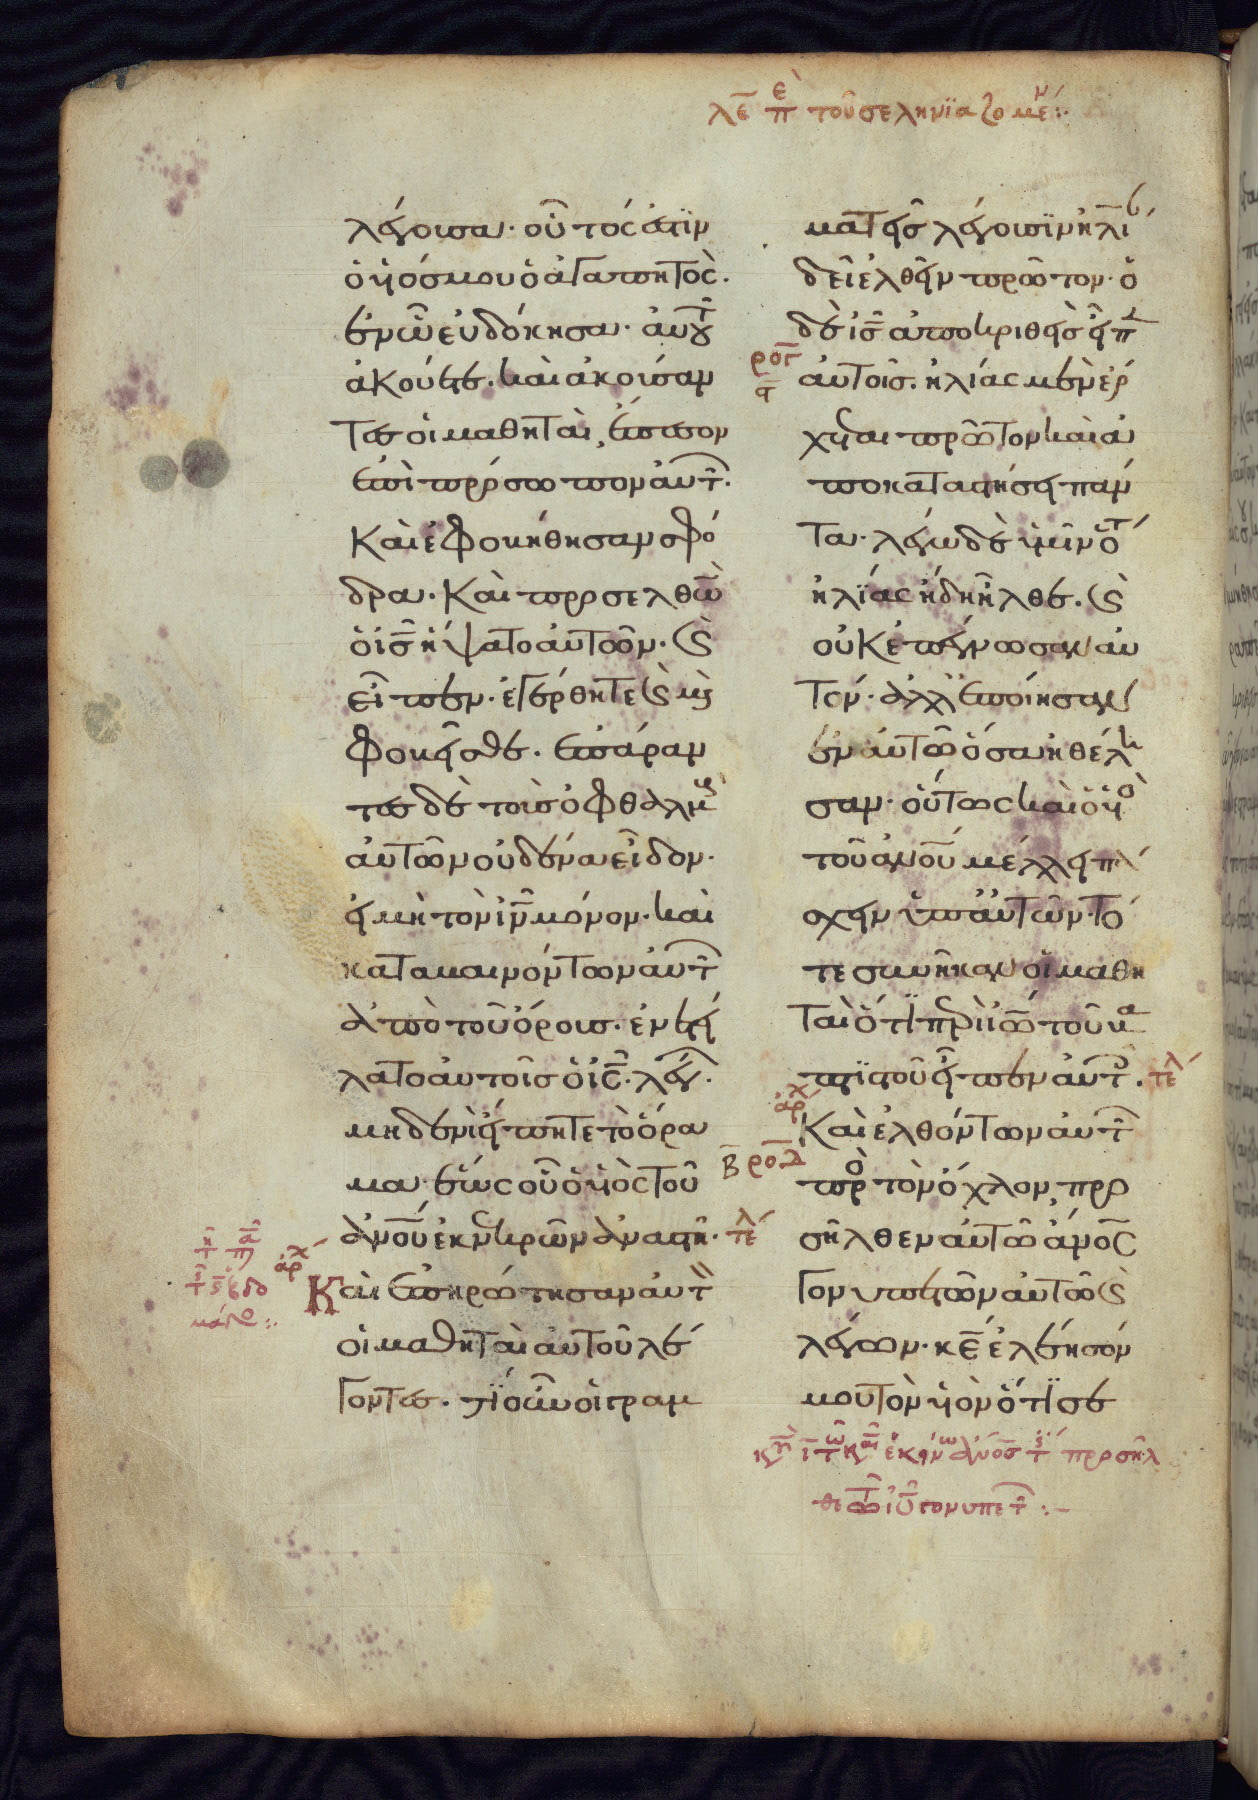 λε επ τοῦ σεληνϊαζομεν:
λέγουσα· οὗτός ἐστϊν
ὁ υἱός μου ὁ ἀγαπητὸς·
ἐν ὧ εὐδόκησα· αὐτοῦ
ἀκούετε. καὶ ἀκούσαν
τες οἱ μαθηταὶ, ἔπεσον
ἐπὶ πρόσωπον αὐτ̑·
Καὶ ἐφοβήθησαν σφό
δρα· Καὶ προσελθὼ
ὁ ις̅ ἥψατο αὐτῶν· ϗ
εἶπεν· ἐγέρθητε ϗ μὴ
φοβεῖσθε· ἐπάραν
τες δὲ τοὺς ὀφθαλμ
αὐτῶν οὐδένα εἶδον·
εἰ μὴ τὸν ιν̅ μόνον· καὶ
καταβαινόντων αὐτ̑
ἀπὸ τοῦ ὄρους· ἐνετεί
λατο αὐτοῖς ὁ ις̅· λέγ·
μηδενὶ εἴπητε τὸ ὅρα
μα· ἕως οὗ ὁ υἱὸς τοῦ
ἀνου̅ ἐκ νεκρῶν ἀναστῆ· τελ
αρχ
Καὶ ἐπηρώτησαν αὐτ
οἱ μαθηταὶ αὐτοῦ λέ
γοντες· τΐ οὖν οἱ γραμ
ματεῖς λέγουσϊν ἠλι
δεῖ ἐλθεῖν πρῶτον· ὁ
δὲ ις̅ ἀποκριθεὶς εἶπ
ρογ
αὐτοῖς· ἠλίας μὲν ἔρ
χεται πρῶτον καὶ ἀ
ποκαταστήσει πάν
τα· λέγω δὲ ὑμῖν ὅτ
ἠλΐας ἤδη ἦλθε· ϗ
οὐκ ἐπέγνωσαν αὐ
τόν· ἀλλ ἐποίησαν
ἐν αὐτῶ ὅσα ἠθέλη
σαν· οὕτως καὶ ὁ υἱὸ
τοῦ ἀνου̅ μέλλει πά
σχειν ὑπ αὐτῶν· τό
τε συνῆκαν οἱ μαθη
ταὶ ὅτϊ περὶ ιω̅ τοῦ βα
πτϊστοῦ εἶπεν αὐτ· τελ
αρχ
Καὶ ἐλθόντων αὐτ̑
β̅ ροδ
πρὸ τὸν ὄχλον, προ
σῆλθεν αὐτῶ ἀνος̅
γονυπετῶν αὐτῶ ϗ
λέγων· κε̅ ἐλέησόν
μου τὸν υἱὸν ὅτϊ σε